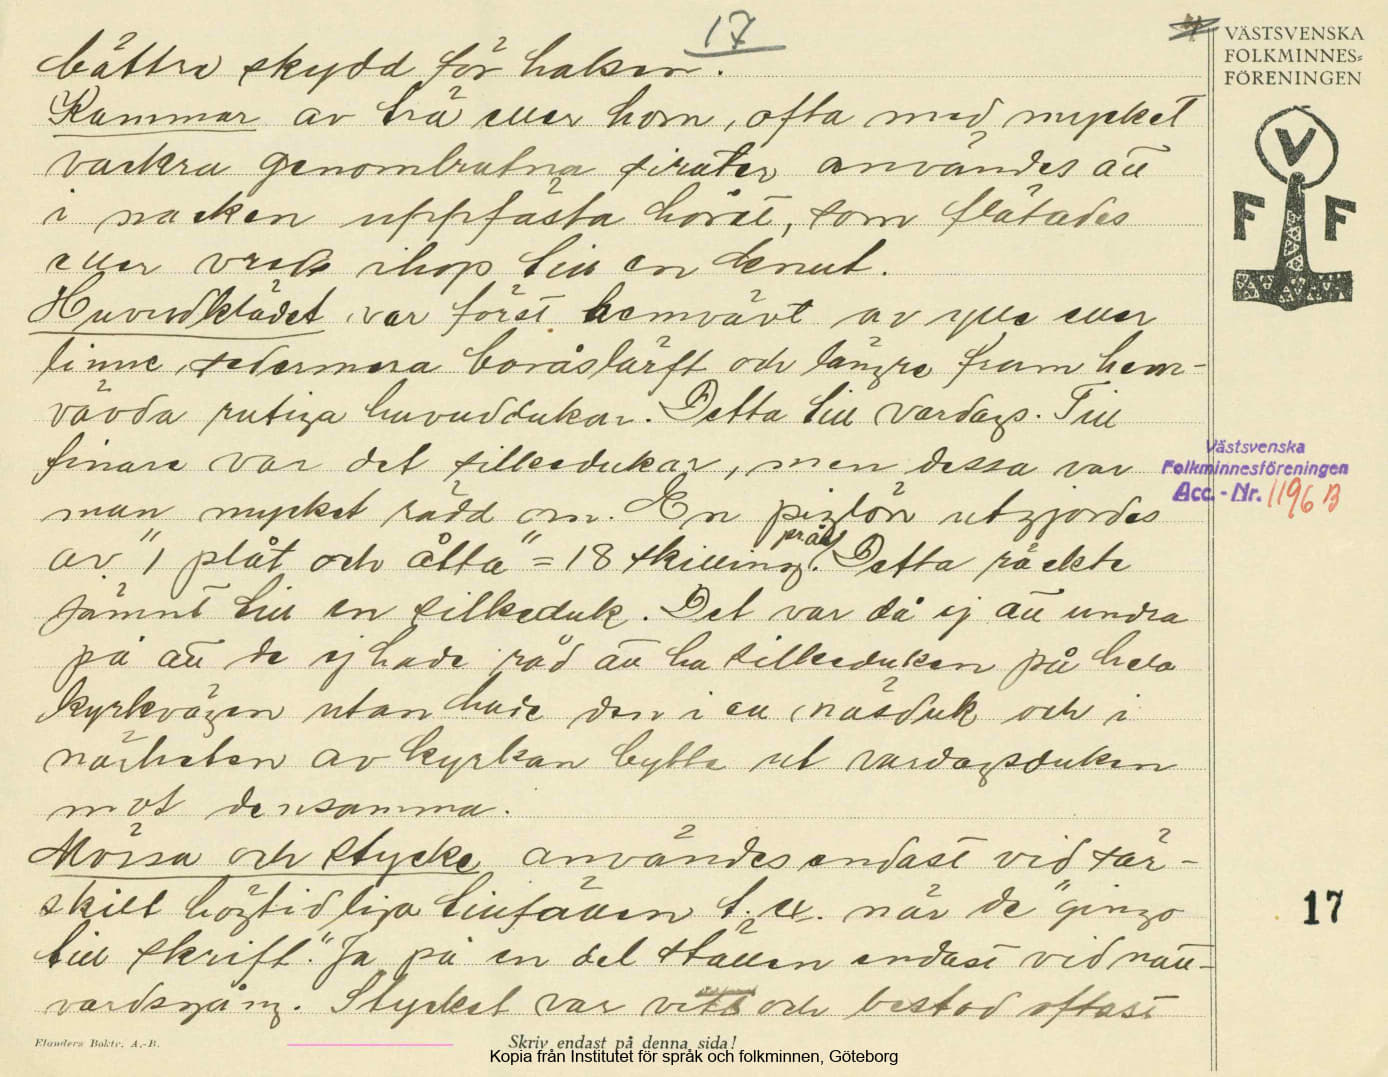 17
bättre skydd för halsen.
Kammar av trä eller horn, ofta med mycket
vackra genombrutna sirater användes att
i nacken uppfästa håret, som flätades
eller vreds ihop till en knut.
Huvudklädet var först hemvävt av ylle eller
linne, sedermera boråslärft och längre fram hem-
vävda rutiga huvuddukar. Detta till vardags. Till
finare var det silkedukar, men dessa var
man mycket rädd om. En piglön utgjordes
av "1 plåt och åtta" = 18 skilling pr. år. Detta räckte
jämnt till en silkeduk. Det var då ej att undra
på att de ej hade råd att ha silkeduken på hela
kyrkvägen utan hade den i en näsduk och i
närheten av kyrkan bytte ut vardagsduken
mot densamma.
Mössa och stycke användes endast vid sär-
skilt högtidliga tillfällen t. ex. när de "gingo
till skrift". Ja på en del ställen endast vid natt-
vardsgång. Stycket var vitt och bestod oftast
VÄSTSVENSKA
FOLKMINNES-
FÖRENINGEN
V
F F
Västsvenska
Folkminnesföreningen
Acc. - Nr. 1196 B
17
Elanders Boktr. A.-B.
Skriv endast på denna sida!
Kopia från Institutet för språk och folkminnen, Göteborg